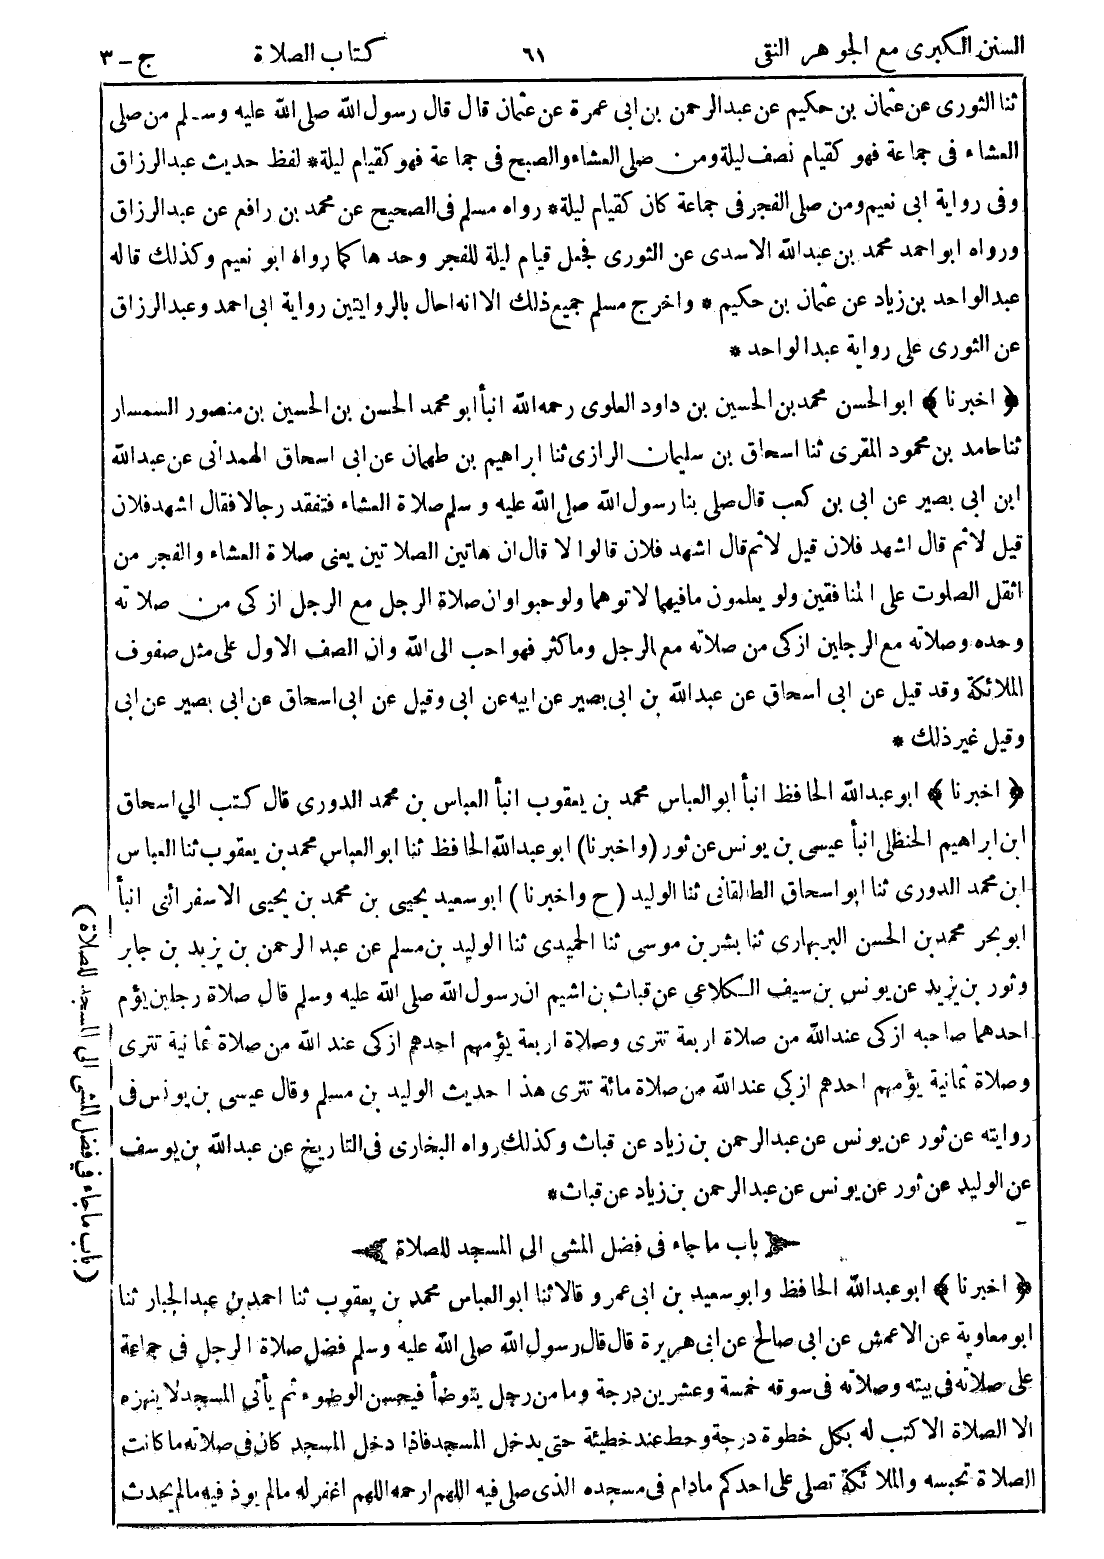 السنن الكبرى مع الجوهر النقى ٦١ كتاب الصلاة ج - ٣
ثنا الثورى عن عثمان بن حكيم عن عبدالرحمن بن ابى عمرة عن عثمان قال قال رسول الله صلى الله عليه وسلم من صلى
العشاء فى جماعة فهو كقيام نصف ليلة ومن صلى العشاء والصبح فى جماعة فهو كقيام ليلة* لفظ حديث عبدالرزاق
وفى رواية ابى نعيم ومن صلى الفجر فى جماعة كان كقيام ليلة* رواه مسلم فى الصحيح عن محمد بن رافع عن عبدالرزاق
ورواه ابو احمد محمد بن عبدالله الاسدى عن الثورى فجعل قيام ليلة للفجر وحدها كما رواه ابو نعيم وكذلك قاله
عبدالواحد بن زياد عن عثمان بن حكيم * واخرج مسلم جميع ذلك الا انه احال بالروايتين رواية ابى احمد وعبدالرزاق
عن الثورى على رواية عبدالواحد *
﴿ اخبرنا ﴾ ابوالحسن محمد بن الحسين بن داود العلوى رحمه الله انبأ ابو محمد الحسن بن الحسين بن منصور السمسار
ثنا حامد بن محمود المقرى ثنا اسحاق بن سليمان الرازى ثنا ابراهيم بن طهمان عن ابى اسحاق الهمدانى عن عبدالله
ابن ابى بصير عن ابى بن كعب قال صلى بنا رسول الله صلى الله عليه وسلم صلاة العشاء فتفقد رجالا فقال اشهد فلان
قيل لا ثم قال اشهد فلان قيل لا ثم قال اشهد فلان قالوا لا قال ان هاتين الصلاتين يعنى صلاة العشاء والفجر من
اثقل الصلوت على المنافقين ولو يعلمون ما فيهما لاتوهما ولو حبوا وان صلاة الرجل مع الرجل ازكى من صلاته
وحده وصلاته مع الرجلين ازكى من صلاته مع الرجل وما كثر فهو احب الى الله وان الصف الاول على مثل صفوف
الملائكة وقد قيل عن ابى اسحاق عن عبدالله بن ابى بصير عن ابيه عن ابى وقيل عن ابى اسحاق عن ابى بصير عن ابى
وقيل غير ذلك *
﴿ اخبرنا ﴾ ابو عبدالله الحافظ انبأ ابو العباس محمد بن يعقوب انبأ العباس بن محمد الدورى قال كتب الي اسحاق
ابن ابراهيم الحنظلى انبأ عيسى بن يونس عن ثور (واخبرنا) ابو عبدالله الحافظ ثنا ابو العباس محمد بن يعقوب ثنا العباس
ابن محمد الدورى ثنا ابو اسحاق الطالقانى ثنا الوليد ( ح واخبرنا ) ابو سعيد يحيى بن محمد بن يحيى الاسفرائنى انبأ
ابو بحر محمد بن الحسن البربهارى ثنا بشر بن موسى ثنا الحميدى ثنا الوليد بن مسلم عن عبد الرحمن بن يزيد بن جابر
وثور بن يزيد عن يونس بن سيف الكلاعى عن قباث بن اشيم ان رسول الله صلى الله عليه وسلم قال صلاة رجلين يؤم
احدهما صاحبه ازكى عند الله من صلاة اربعة تترى وصلاة اربعة يؤمهم احدهم ازكى عند الله من صلاة ثمانية تترى
وصلاة ثمانية يؤمهم احدهم ازكى عند الله من صلاة مائة تترى هذا حديث الوليد بن مسلم وقال عيسى بن يونس فى
روايته عن ثور عن يونس عن عبدالرحمن بن زياد عن قباث وكذلك رواه البخارى فى التاريخ عن عبدالله بن يوسف
عن الوليد عن ثور عن يونس عن عبدالرحمن بن زياد عن قباث*
باب ما جاء فى فضل المشى الى المسجد للصلاة
﴿ اخبرنا ﴾ ابو عبدالله الحافظ وابو سعيد بن ابى عمرو قالا ثنا ابو العباس محمد بن يعقوب ثنا احمد بن عبدالجبار ثنا
ابو معاوية عن الاعمش عن ابى صالح عن ابى هريرة قال قال رسول الله صلى الله عليه وسلم فضل صلاة الرجل فى جماعة
على صلاته فى بيته وصلاته فى سوقه خمسة وعشرين درجة وما من رجل يتوضأ فيحسن الوضوء ثم يأتى المسجد لا ينهزه
الا الصلاة الا كتب له بكل خطوة درجة وحط عنه خطيئة حتى يدخل المسجد فاذا دخل المسجد كان فى صلاته ما كانت
الصلاة تحبسه والملائكة تصلى على احدكم مادام فى مسجده الذى صلى فيه اللهم ارحمه اللهم اغفر له مالم يوذ فيه مالم يحدث
(باب ما جاء فى فضل المشى الى المسجد للصلاة)